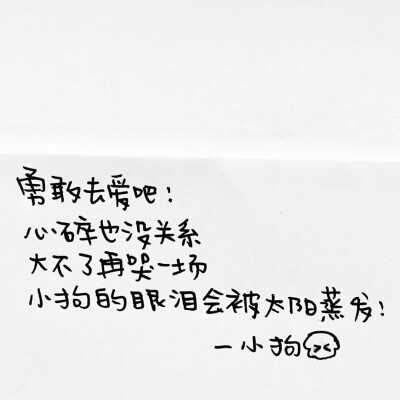 勇敢去爱吧！
心碎也没关系
大不了再哭一场
小狗的眼泪会被太阳蒸发！
一小狗